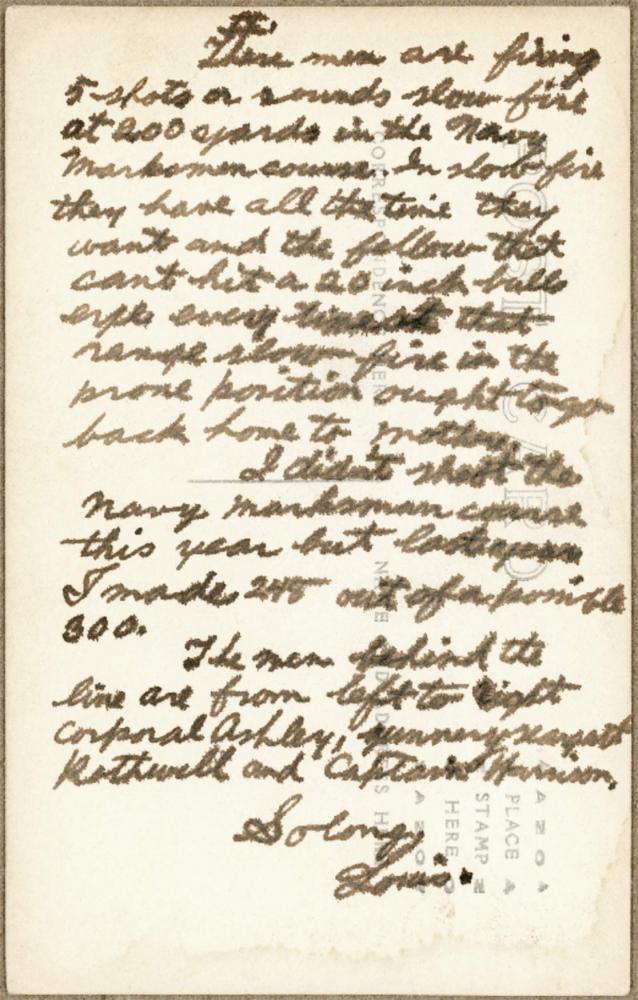 These men are firing
5 shots or rounds slow fire
at 200 yards in the Navy
Marksmen course. In slow fire
they have all the time they
want and the fellow that
cant hit a 20 inch bulls
eye every time at that
range slow fire in the
prone position ought to go
back home to mother.
I didn't shoot the
Navy marksman course
this year but last year
I made 245 out of a possible
300.
The men behind the
line are from left to right
Corporal Ashley, gunnery sergeant
Rothwell and Captain Harrison.
So long,
Louis.
POST CARD
CORRESPONDENCE HERE
NAME AND ADDRESS HERE
AZO
PLACE
STAMP
HERE
AZO